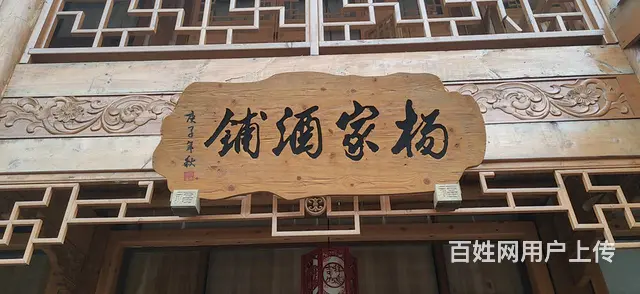 杨家酒铺
庚子年秋
百姓网用户上传